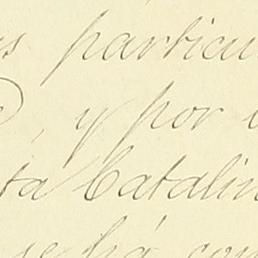 s particu
, y por
ta Catalin
se há con